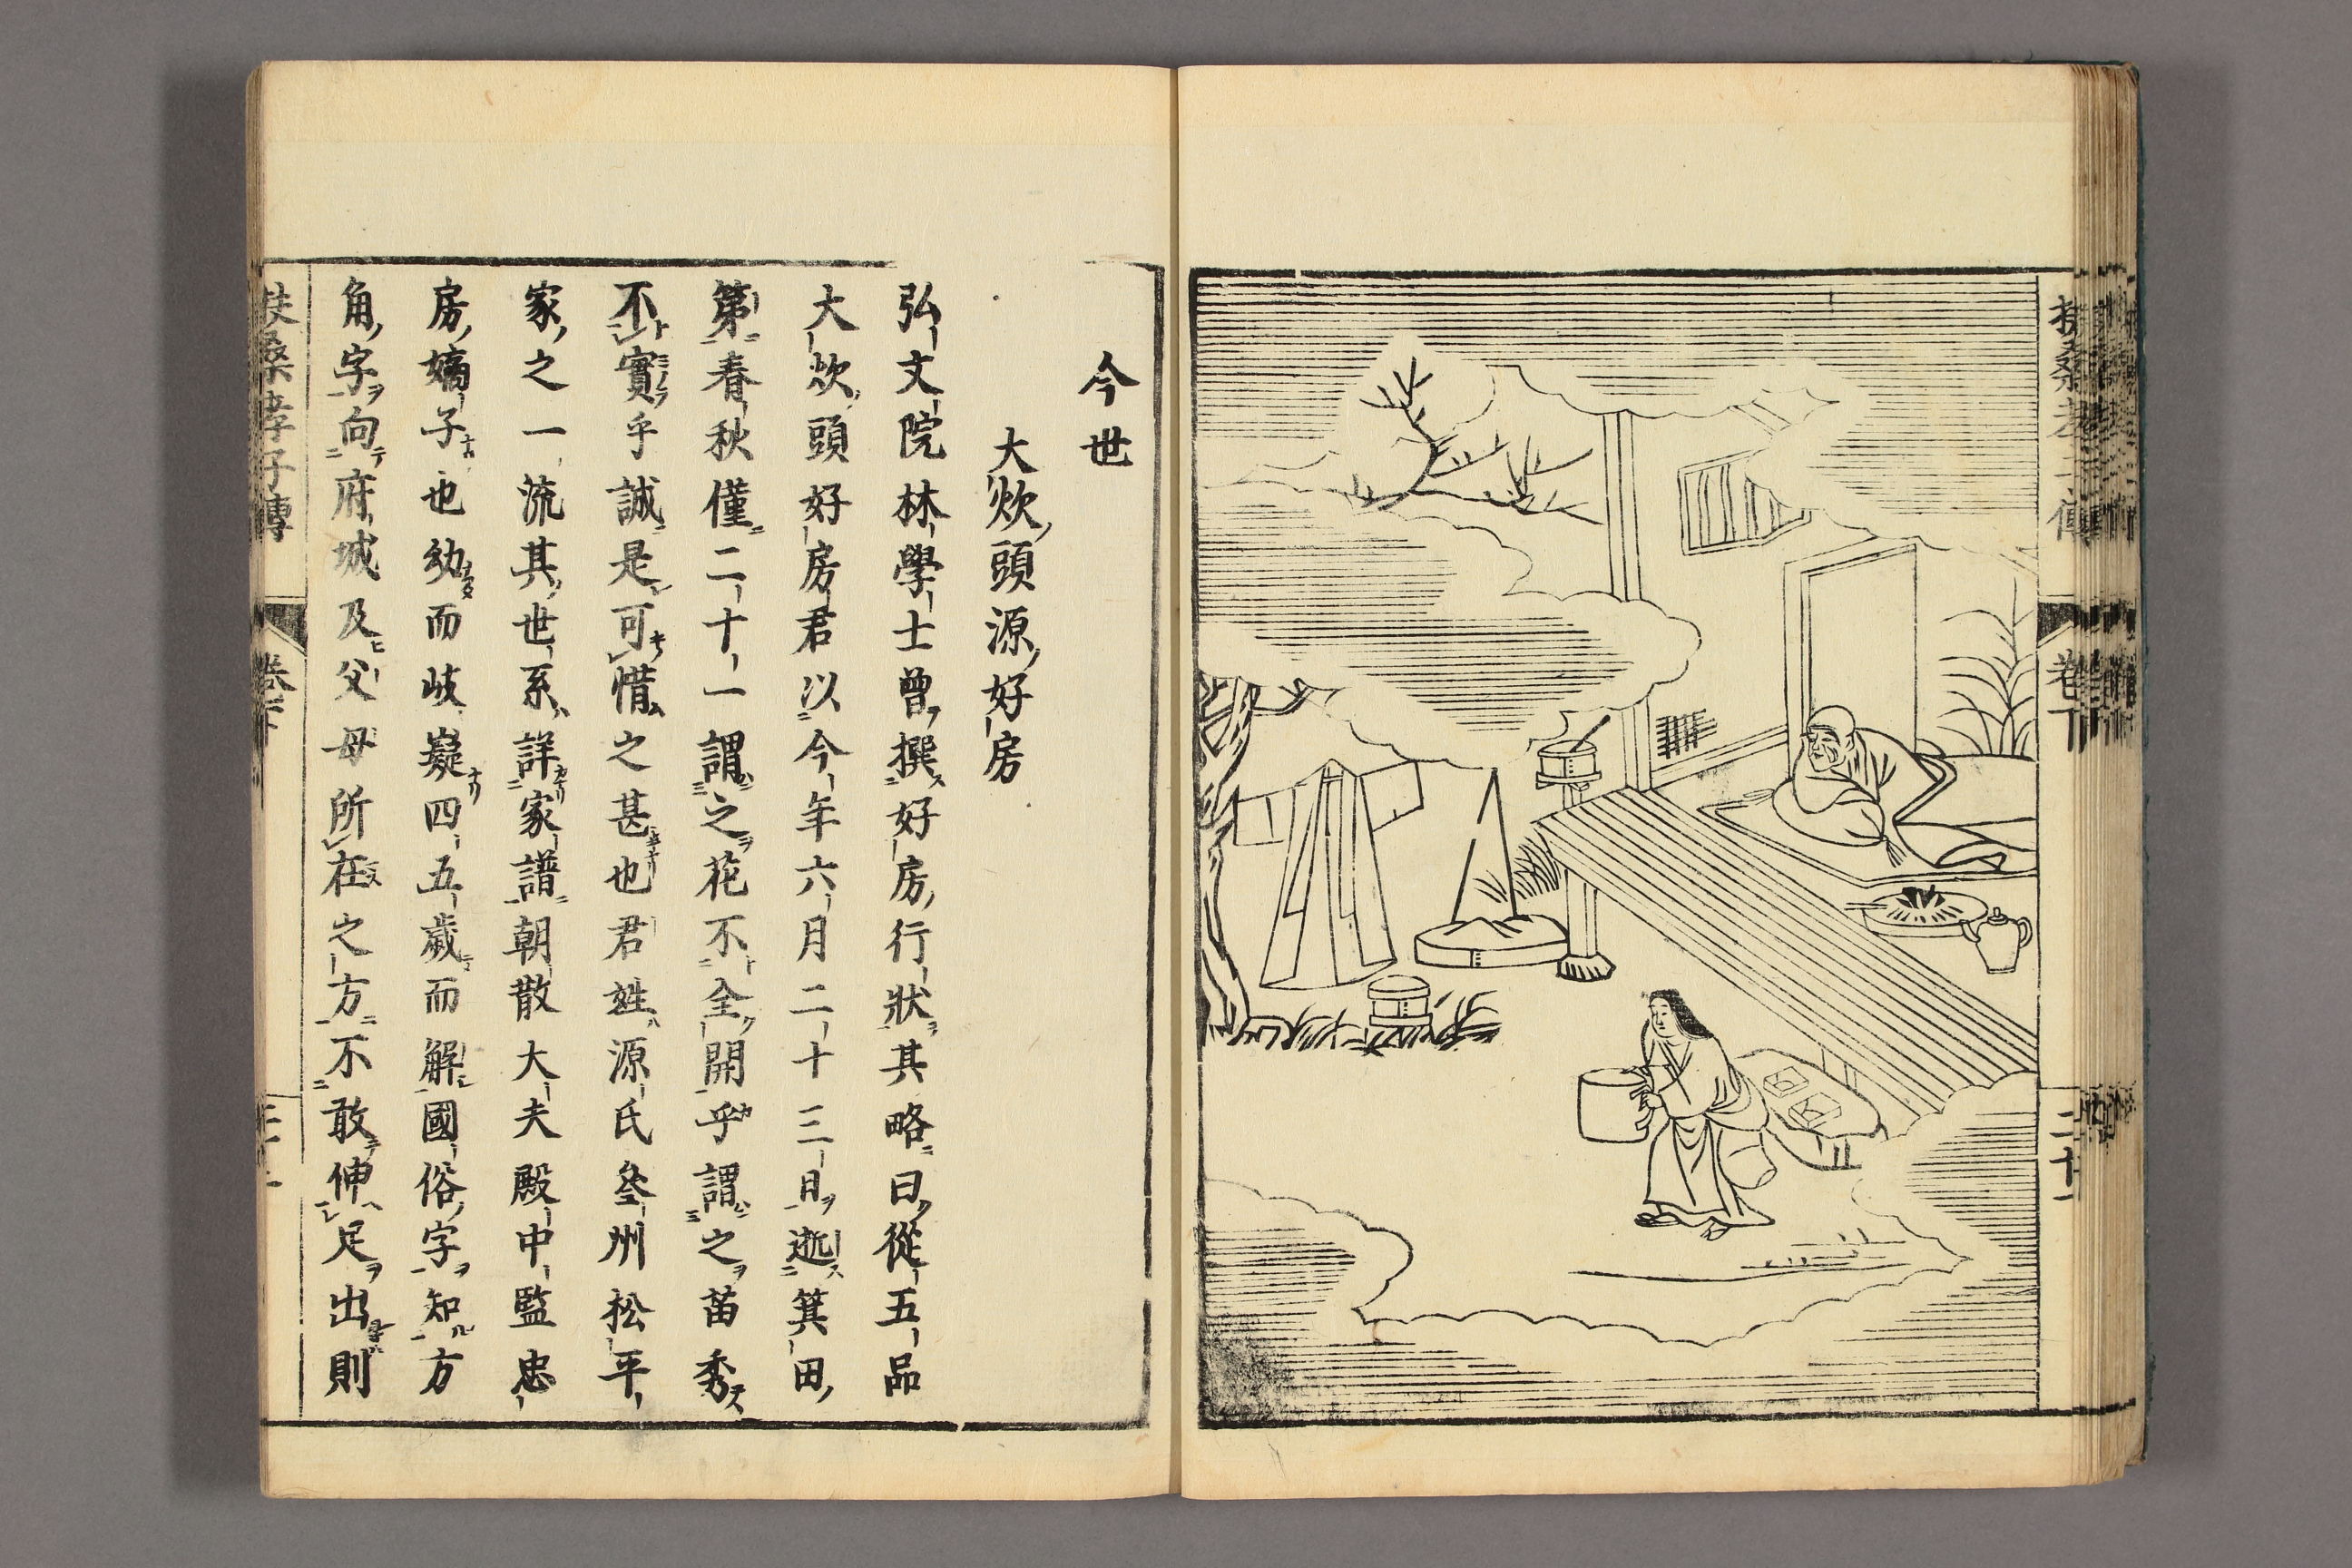 扶桑孝子傳
卷下
二十一
今世
大炊頭源好房
弘文院林學士曾撰好房行狀其略曰從五品
大炊頭好房君以今年六月二十三日逝箕田
第春秋僅二十一謂之花不全開乎謂之苗秀
不實乎誠是可惜之甚也君姓源氏叄州松平
家之一流其世系詳家譜朝散大夫殿中監忠
房嫡子也幼而岐嶷四五歲而解國俗字知方
角字向府城及父母所在之方不敢伸足出則
扶桑孝子傳
卷下